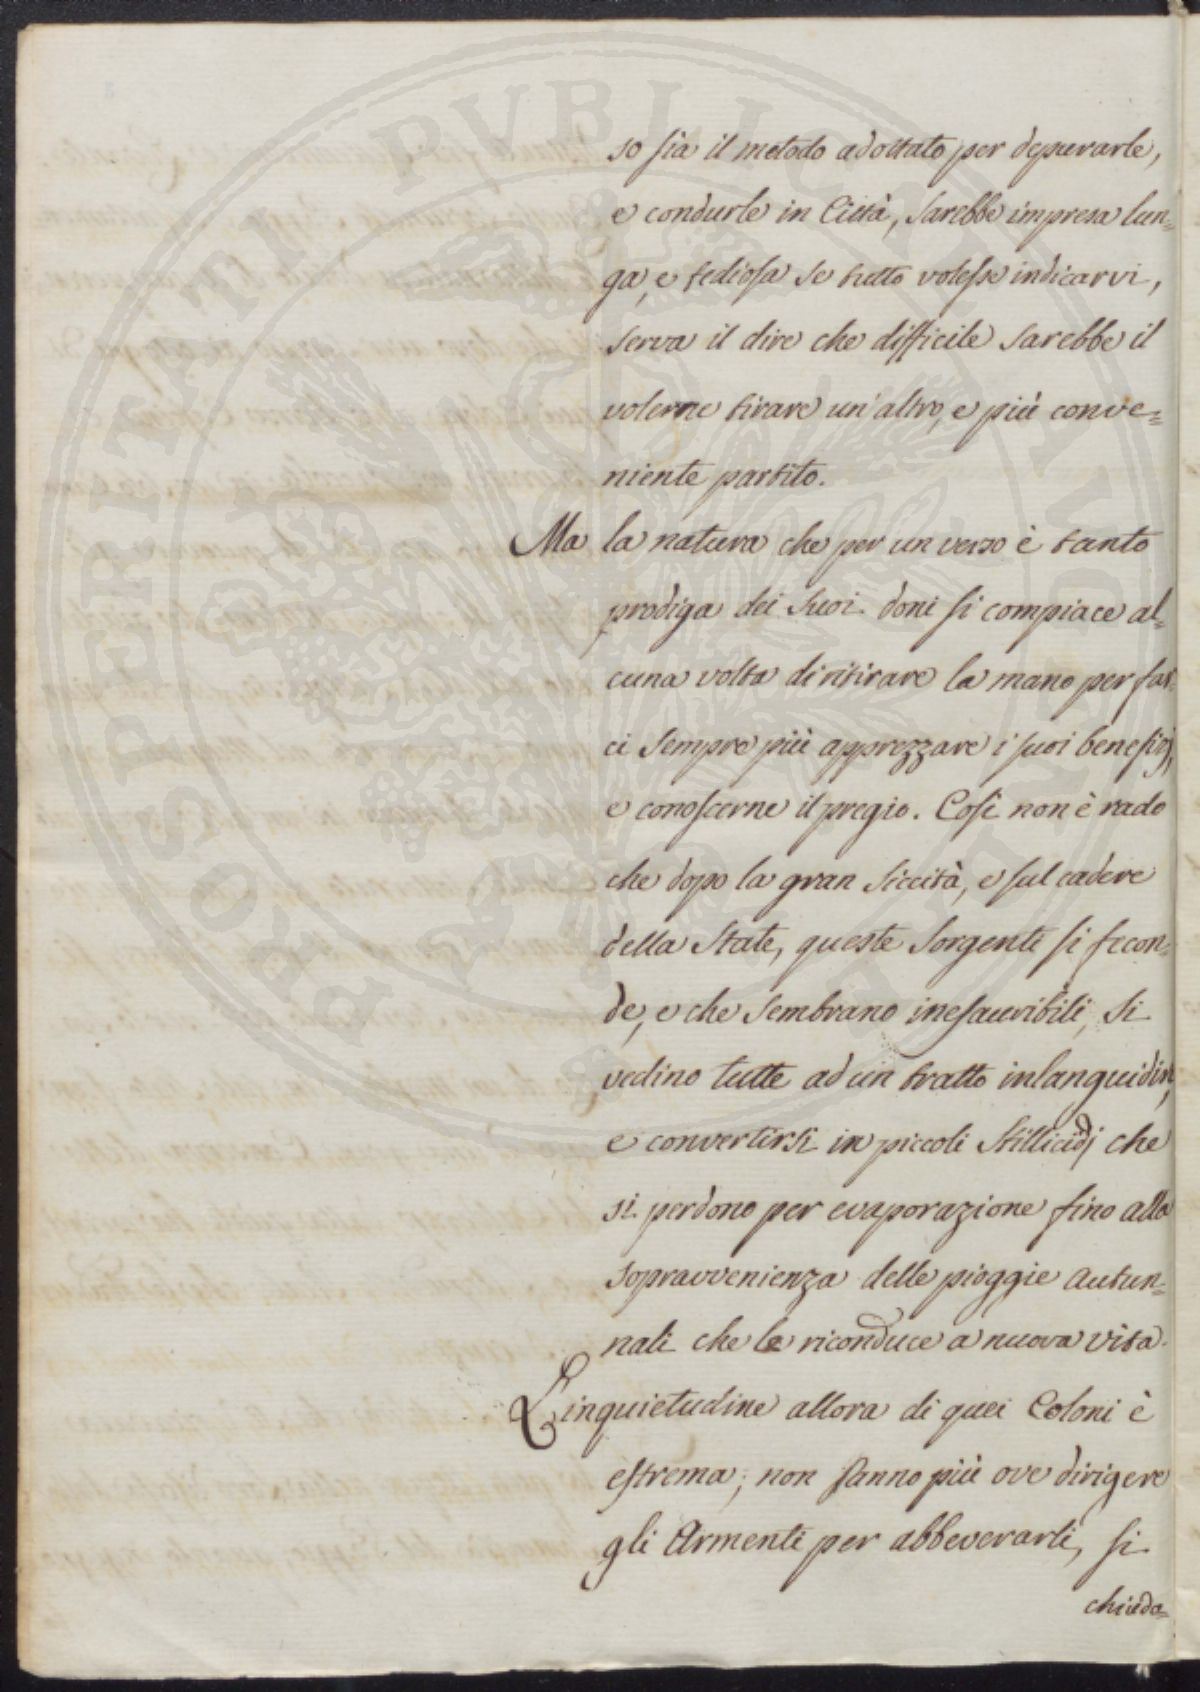 so sia il metodo adottato per depurarle,
e condurle in Città, sarebbe impresa lun=
ga, e tediosa se tutto volesse indicarvi,
serva il dire che difficile sarebbe il
volerne tirare un'altro, e più conve=
niente partito.
Ma la natura che per un verso è tanto
prodiga dei suoi doni si compiace al=
cuna volta di ritirare la mano per far=
ci sempre più apprezzare i suoi benefizj,
e conoscerne il pregio. Così non è rado
che dopo la gran siccità, e sul cadere
della State, queste sorgenti si fecon=
de, e che sembrano inesauribili, si
vedino tutte ad un tratto inlanguidire,
e convertirsi in piccoli stillicidj che
si perdono per evaporazione fino alla
sopravvenienza delle pioggie autun=
nali che le riconduce a nuova vita.
L'inquietudine allora di quei Coloni è
estrema; non sanno più ove dirigere
gli Armenti per abbeverarli, si
chiedo=
PROSPERITATI PVBLICAE